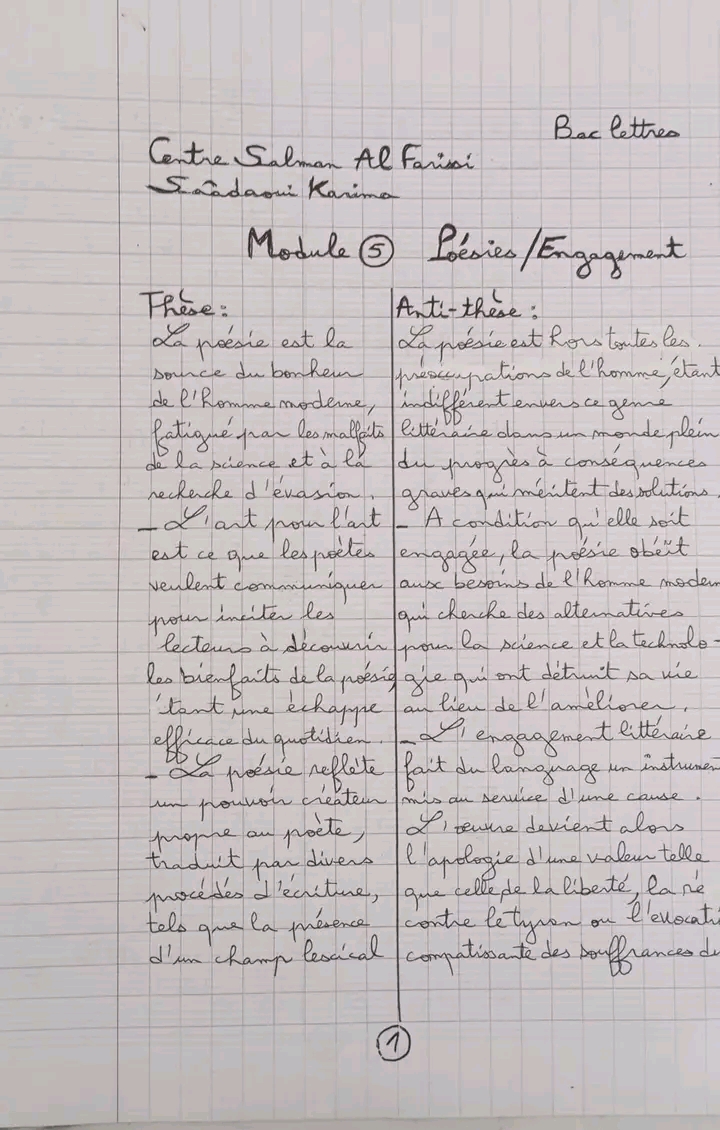 Bac lettres
Centre Salman Al Farissi
Saâdaoui Karima
Module 5 Poésies/Engagement
Thèse:
La poésie est la
source du bonheur
de l'homme moderne,
fatigué par les malfaits
de la science et à la
recherche d'évasion.
- L'art pour l'art
est ce que les poètes
veulent communiquer
pour inciter les
lecteurs à découvrir
les bienfaits de la poésie
étant une échappe
efficace du quotidien.
- La poésie reflète
un pouvoir créateur
propre au poète,
traduit par divers
procédés d'écriture,
tels que la présence
d'un champ lescical
Anti-thèse:
La poésie est hors toutes les
préoccupations de l'homme, étant
indifférent envers ce genre
littéraire dans un monde plein
du progrès à conséquences
graves qui méritent des solutions.
- A condition qu'elle soit
engagée, la poésie obéit
aux besoins de l'homme modern
qui cherche des alternatives
pour la science et la technolo-
gie qui ont détruit sa vie
au lieu de l'améliorer.
- L'engagement littéraire
fait du language un instrumen
mis au service d'une cause.
L'œuvre devient alors
l'apologie d'une valeur telle
que celle de la liberté, la ré
contre le tyran ou l'évocati
compatissante des souffrances du
1